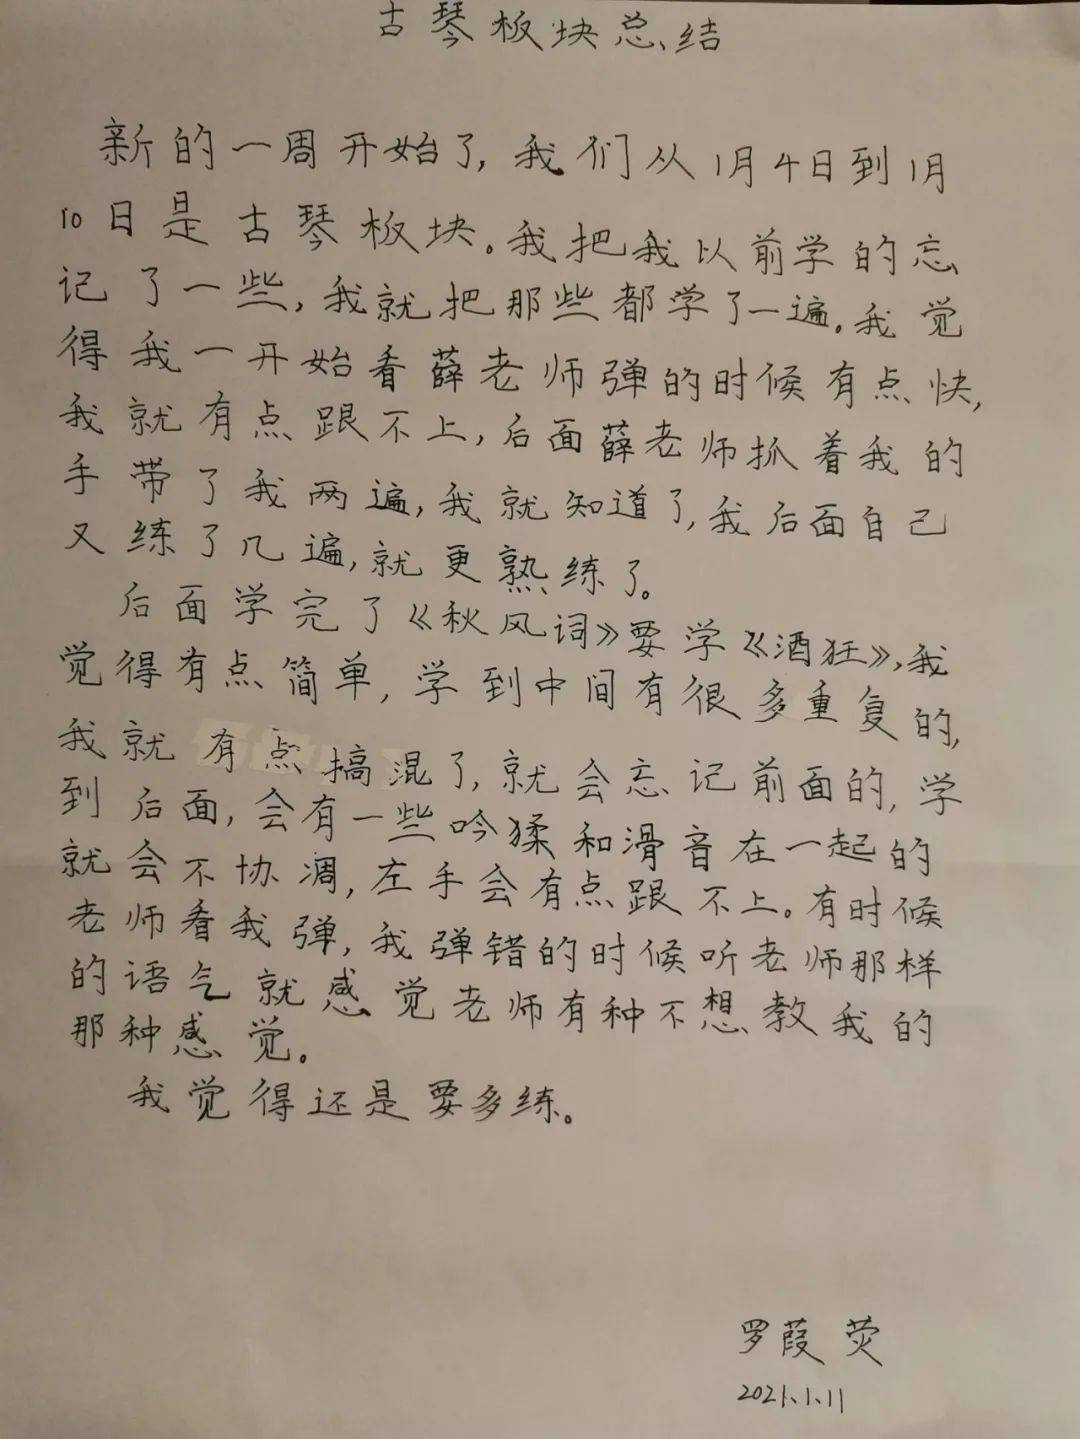 古琴板块总结
新的一周开始了,我们从1月4日到1月
10日是古琴板块。我把我以前学的忘
记了一些,我就把那些都学了一遍。我觉
得我一开始看薛老师弹的时候有点快,
我就有点跟不上,后面薛老师抓着我的
手带了我两遍,我就知道了,我后面自己
又练了几遍,就更熟练了。
后面学完了《秋风词》要学《酒狂》,我
觉得有点简单,学到中间有很多重复的,
我就有点搞混了,就会忘记前面的,学
到后面,会有一些吟猱和滑音在一起的
就会不协凋,左手会有点跟不上。有时候
老师看我弹,我弹错的时候听老师那样
的语气就感觉老师有种不想教我的
那种感觉。
我觉得还是要多练。
罗葭荧
2021.1.11